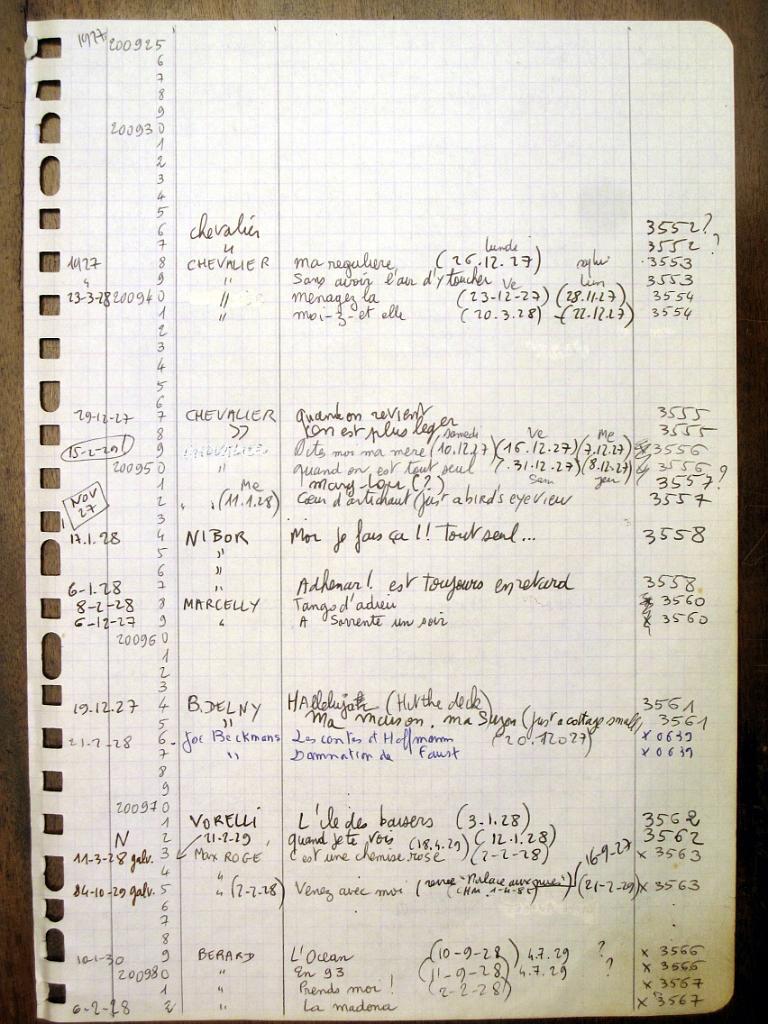 1927 200925
6
7
8
9
200930
1
2
3
4
5
6 chevalier 3552?
7 " 3552?
lundi
1927 8 CHEVALIER ma reguliere (26.12.27) 3553
" 9 " Sans avoir l'air d'y toucher 3553
Ve Lun
23-3-28 200940 " menagez la (23-12-27) (28.11.27) 3554
1 " moi-z-et elle (20.3.28) (22.12.27) 3554
2
3
4
5
6
29-12-27 7 CHEVALIER quand on revient 3555
8 " on est plus leger 3555
samedi Ve Me
15-2-29! 9 CHEVALIER Dites moi ma mere (10.12.27) (16.12.27) (7.12.27) 3556
200950 " quand on est tout seul (31.12.27) (8.12.27) 3556
Sam jeu
1 Me mary-lou (?) 3557?
NOV 27 2 " (11.1.28) Cœur d'artichaut (just a bird's eye view 3557
3
17.1.28 4 NIBOR Moi je fais ça!! Tout seul... 3558
5 "
6 "
6-1.28 7 " Adhemar! est toujours en retard 3558
8-2-28 8 MARCELLY Tango d'adieu 3560
6-12-27 9 " A Sorrente un soir x 3560
200960
1
2
3
19.12.27 4 B.DELNY HAllelujah (Hit the deck) 3561
5 " Ma maison, ma Suzon (just a cottage small) 3561
21-2-28 6 Joe Beckmans Les contes d'Hoffmann (20.12027) x 0639
7 " Damnation de Faust x 0639
8
9
200970
1 VORELLI L'ile des baisers (3-1.28) 3562
N 2 " 21-2-29 quand je te vois (18.4.29) (12.1.28) 3562
11-3-28 galv. 3 Max ROGE C'est une chemise rose (2-2-28) 16-9-27 x 3563
4 "
24-10-29 galv. 5 " (2-2-28) Venez avec moi (revue "Palace aux nues") (21-2-29) x 3563
6
7
8
10-1-30 9 BERARD L'Ocean (10-9-28) 4.7.29 ? x 3566
200980 " En 93 (11-9-28) 4.7.29 ? x 3566
1 " Prends moi! (2-2-28) x 3567
6-2-28 2 " La madona x 3567